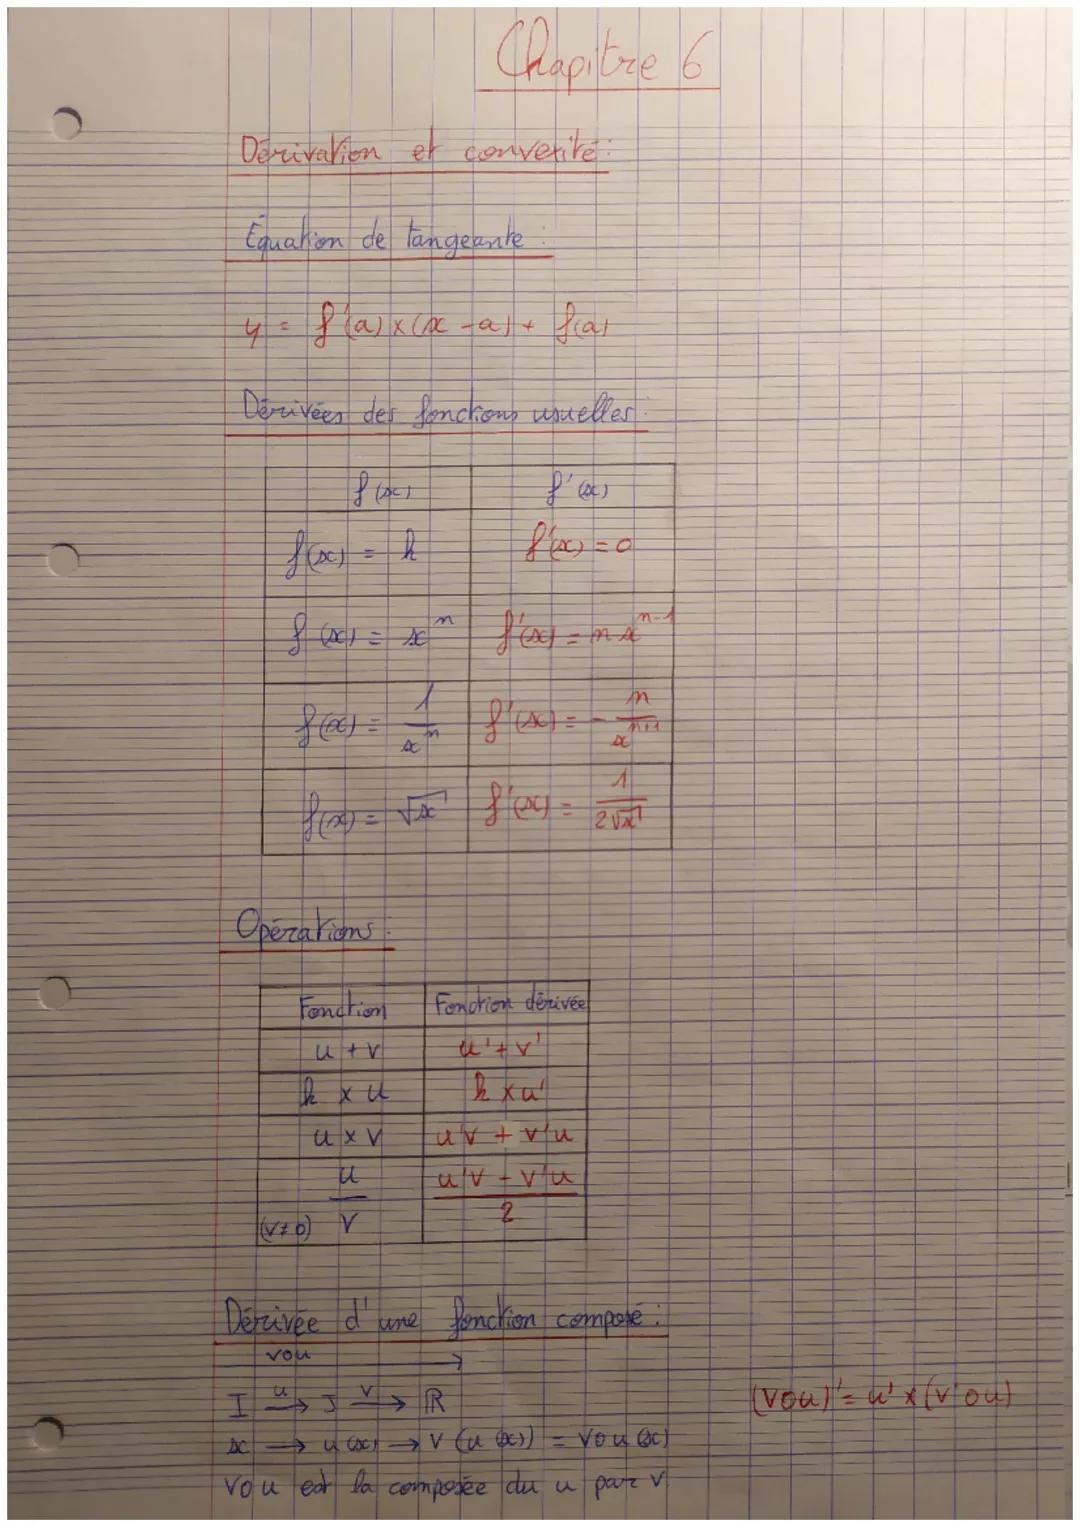 Chapitre 6
Dérivation et convexité :
Équation de tangeante :
y = f'(a) × (x - a) + f(a)
Dérivées des fonctions usuelles :
f(x) f'(x)
f(x) = k f'(x) = 0
f(x) = x^n f'(x) = n x^{n-1}
f(x) = 1/x^n f'(x) = - n/x^{n+1}
f(x) = √x f'(x) = 1/(2√x)
Opérations :
Fonction Fonction dérivée
u + v u' + v'
k × u k × u'
u × v u'v + v'u
u/v (v≠0) (u'v - v'u)/2
Dérivée d'une fonction composé :
vou →
I →u J →v ℝ (vou)' = u' × (v'ou)
x → u(x) → v(u(x)) = vou(x)
vou est la composée du u par v